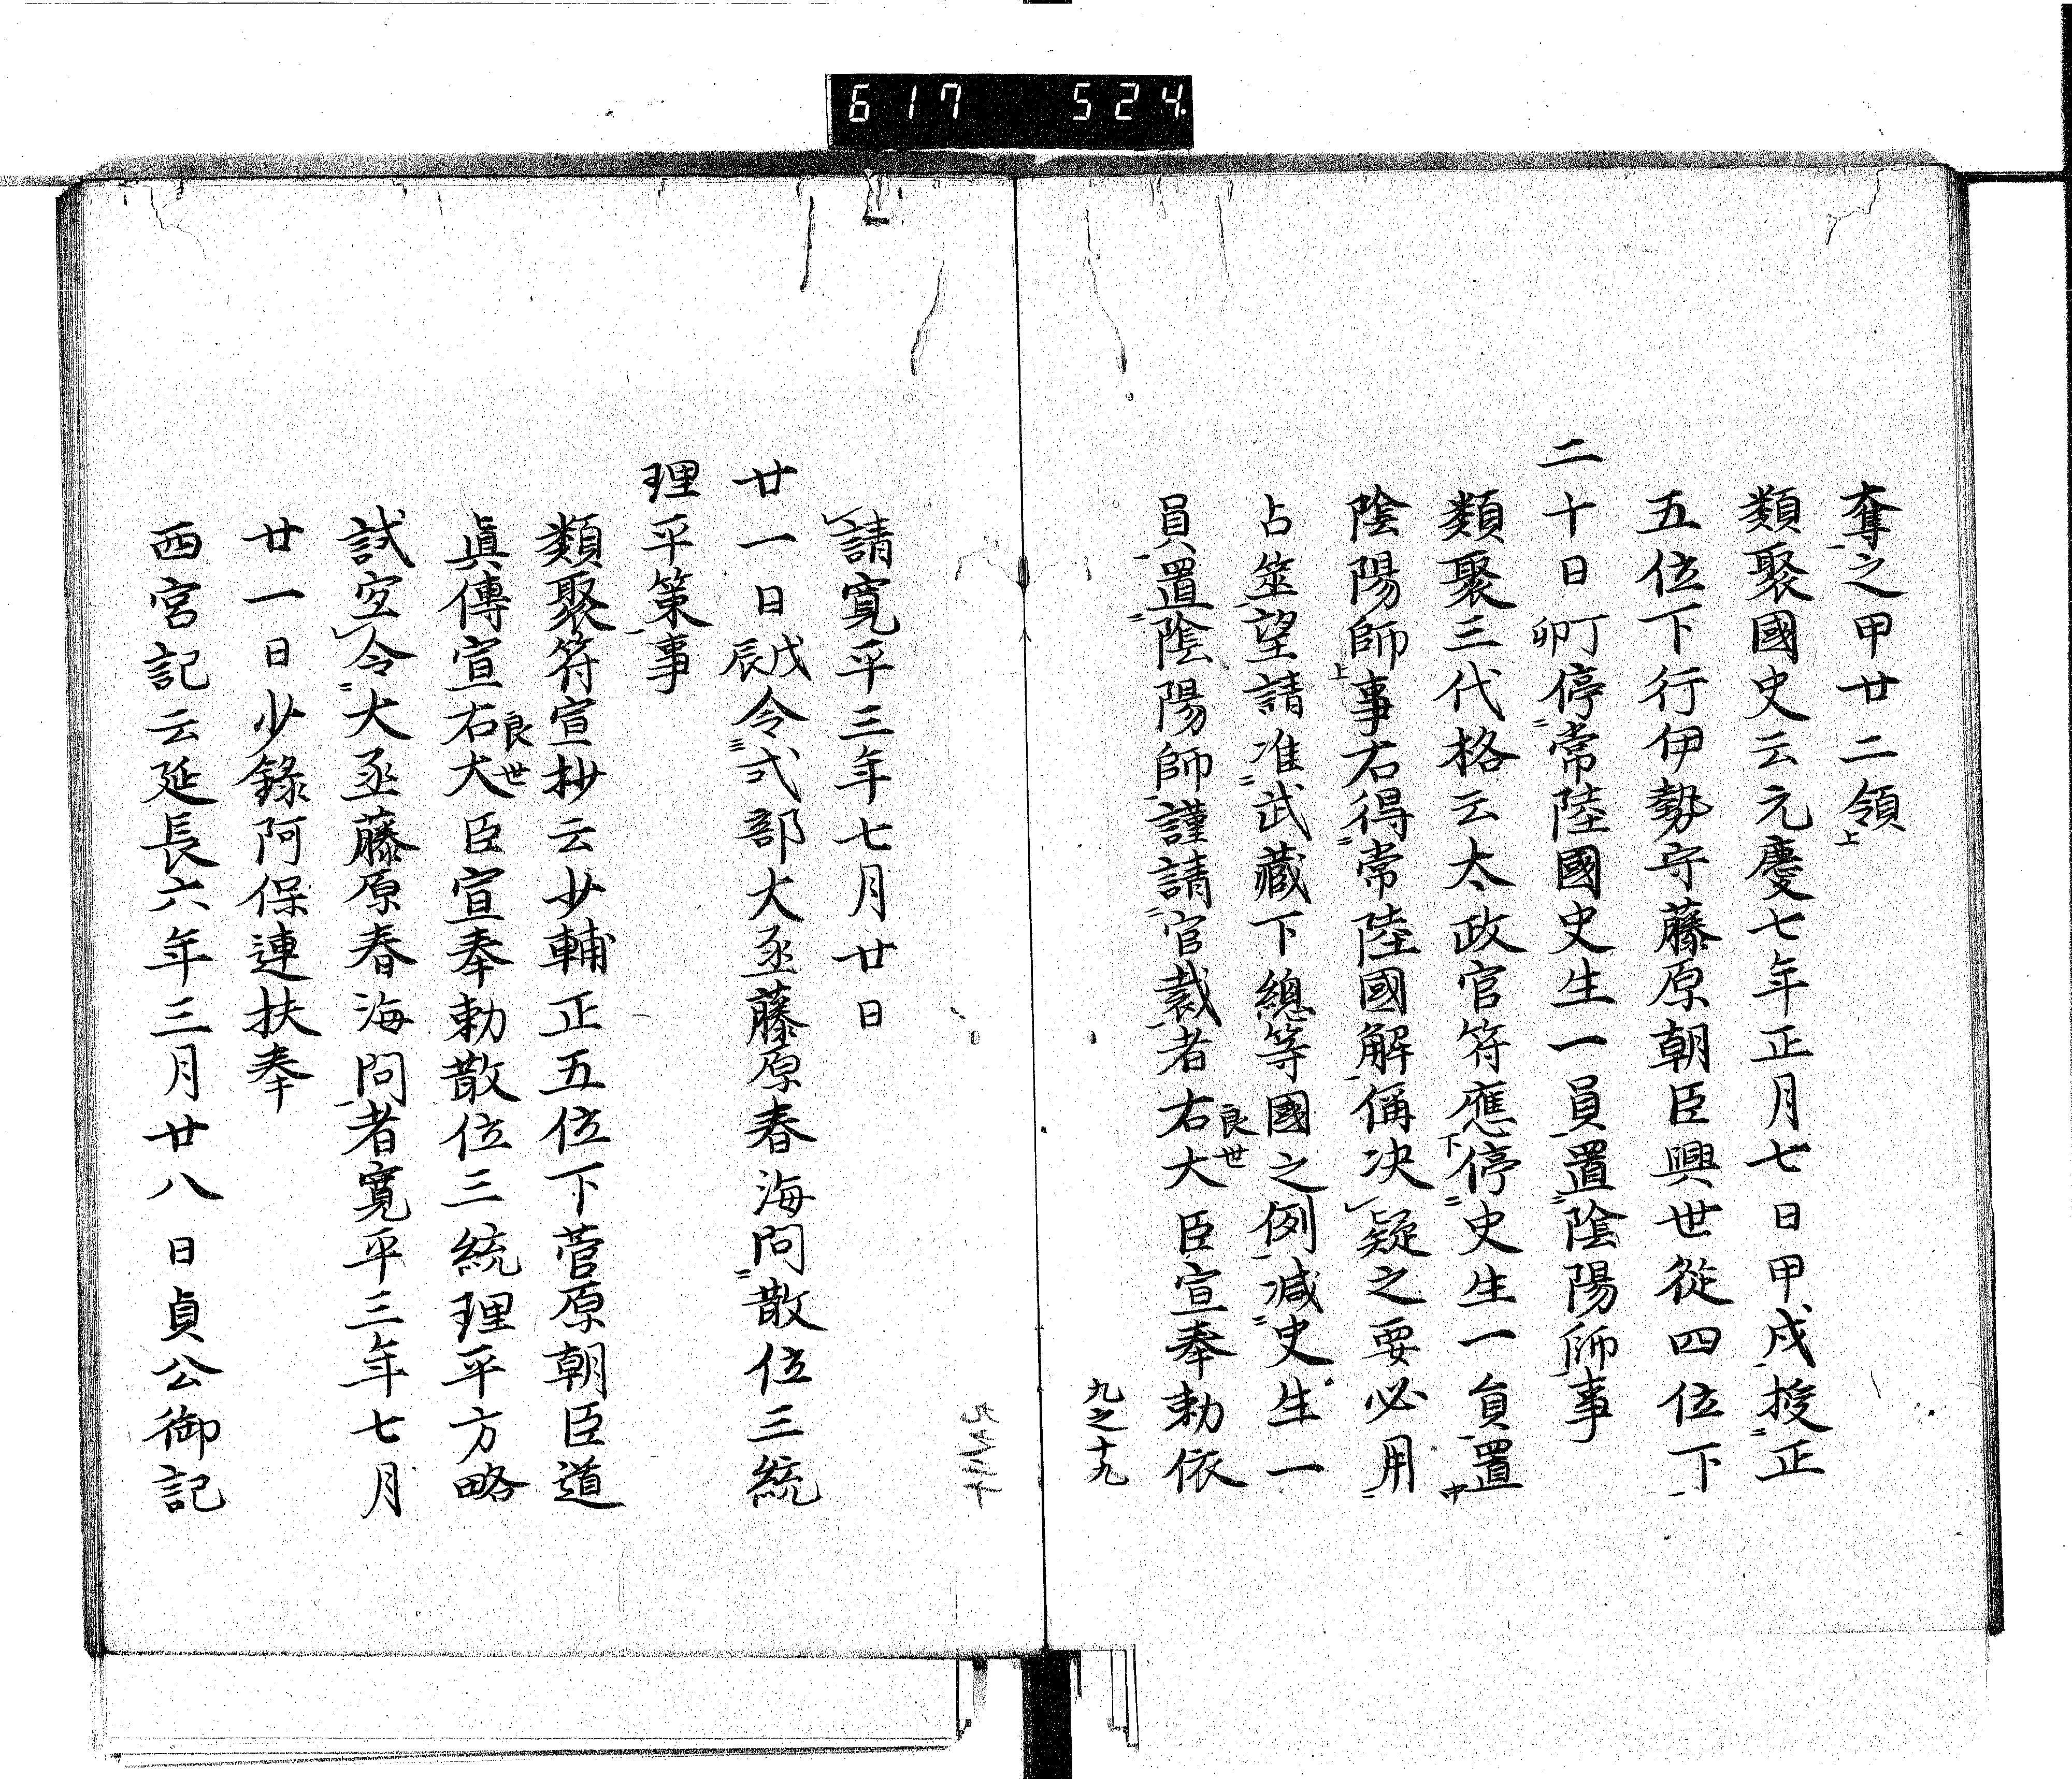 617 524
奪之甲廿二領上
類聚國史云元慶七年正月七日甲戌授正
五位下行伊勢守藤原朝臣興世從四位下
二十日丁卯停常陸國史生一員置陰陽師事
類聚三代格云太政官符應下停史生一員置中
陰陽師上事右得常陸國解偁决疑之要必用
占筮望請准武藏下總等國之例減史生一
員置陰陽師謹請官裁者右大臣良世宣奉勅依
九之十九
請寬平三年七月廿日
廿一日戊辰令式部大丞藤原春海問散位三統
理平策事
類聚符宣抄云少輔正五位下菅原朝臣道
眞傳宣右大臣良世宣奉勅散位三統理平方略
試宜令大丞藤原春海問者寬平三年七月
廿一日少錄阿保連扶奉
西宮記云延長六年三月廿八日貞公御記